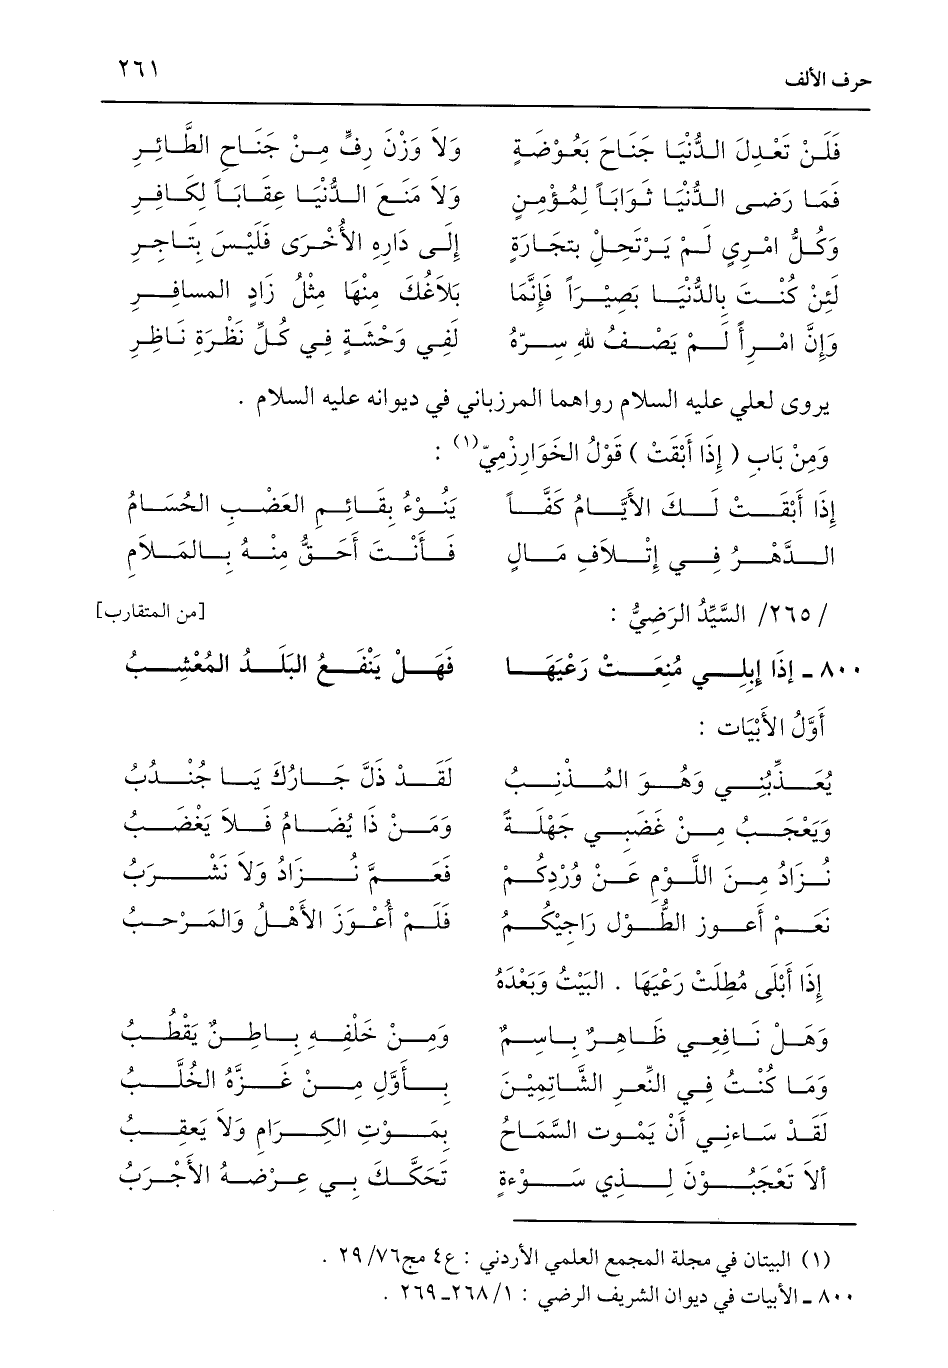 حرف الألف ٢٦١
فَلَنْ تَعْدِلَ الدُّنْيَا جَنَاحَ بَعُوْضَةٍ وَلاَ وَزْنَ رِفٍّ مِنْ جَنَاحِ الطَّائِرِ
فَمَا رَضِى الدُّنْيَا ثَوَابَاً لِمُؤْمِنٍ وَلاَ مَنَعَ الدُّنْيَا عِقَابَاً لِكَافِرِ
وَكُلُّ امْرِيٍ لَمْ يَرْتَحِلْ بِتِجَارَةٍ إِلَى دَارِهِ الأُخْرَى فَلَيْسَ بِتَاجِرِ
لَئِنْ كُنْتَ بِالدُّنْيَا بَصِيْرَاً فَإِنَّمَا بَلاَغُكَ مِنْهَا مِثْلُ زَادِ المسافِرِ
وَإِنَّ امْرأً لَمْ يَصْفُ للهِ سِرّهُ لَفِي وَحْشَةٍ فِي كُلِّ نَظْرَةِ نَاظِرِ
يروى لعلي عليه السلام رواهما المرزباني في ديوانه عليه السلام .
وَمِنْ بَابِ ( إِذَا أَبْقَتْ ) قَوْلُ الخَوَارِزْمِيّ(١) :
إِذَا أَبْقَتْ لَكَ الأَيَّامُ كَفَّاً يَنُوْءُ بِقَائِمِ العَضْبِ الحُسَامُ
الدَّهْرُ فِي إِتْلاَفِ مَالٍ فَأَنْتَ أَحَقُّ مِنْهُ بِالمَلاَمِ
/٢٦٥/ السَّيِّدُ الرَضِيُّ : [من المتقارب]
٨٠٠ ـ إِذَا إِبِلِي مُنِعَتْ رَعْيَهَا فَهَلْ يَنْفَعُ البَلَدُ المُعْشِبُ
أَوَّلُ الأَبْيَات :
يُعَذِّبُنِي وَهُوَ المُذْنِبُ لَقَدْ ذَلَّ جَارُكَ يَا جُنْدُبُ
وَيَعْجَبُ مِنْ غَضَبِي جَهْلَةً وَمَنْ ذَا يُضَامُ فَلاَ يَغْضَبُ
نُزَادُ مِنَ اللَّوْمِ عَنْ وُرْدِكُمْ فَعَمَّ نُزَادُ وَلاَ نَشْرَبُ
نَعَمْ أَعوز الطُّوْل رَاجِيْكُمُ فَلَمْ أُعْوَزَ الأَهْلُ وَالمَرْحبُ
إِذَا أَبْلَى مُطِلَتْ رَعْيَهَا . البَيْتُ وَبَعْدَهُ
وَهَلْ نَافِعِي ظَاهِرٌ بَاسِمٌ وَمِنْ خَلْفِهِ بَاطِنٌ يَقْطُبُ
وَمَا كُنْتُ فِي النَّعرِ الشَّائِمِيْنَ بِأَوَّلِ مِنْ غَزَّهُ الخُلَّبُ
لَقَدْ سَاءنِي أَنْ يَمُوت السَّمَاحُ بِمَوْتِ الكِرَامِ وَلاَ يَعقِبُ
ألاَ تَعْجَبُوْنَ لِذِي سَوْءةٍ تَحَكَّكَ بِي عِرْضهُ الأَجْرَبُ
(١) البيتان في مجلة المجمع العلمي الأردني : ع٤ مج٢٩/٧٦ .
٨٠٠ ـ الأبيات في ديوان الشريف الرضي : ١/ ٢٦٨ـ ٢٦٩ .